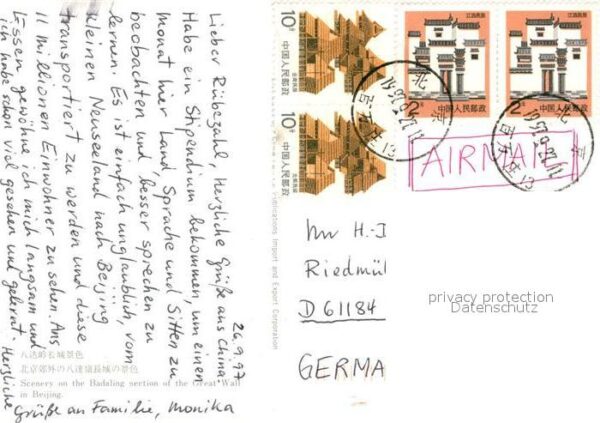 26.9.97
Lieber Rübezahl, Herzliche Grüße aus China
Habe ein Stipendium bekommen, um einen
Monat hier Land, Sprache und Sitten zu
beobachten und besser sprechen zu
lernen. Es ist einfach unglaublich, vom
kleinen Neuseeland nach Beijing
transportiert zu werden und diese
11 millionen Einwohner zu sehen. Ans
Essen gewöhne ich mich langsam und
ich habe schon viel gesehen und gelernt. Herzliche
Grüße an Familie, Monika
八达岭长城景色
北京郊外の八達嶺長城の景色
Scenery on the Badaling section of the Great Wall
in Beijing.
Publications Import and Export Corporation
10分
中国人民邮政
10分
中国人民邮政
江西民居
中国人民邮政
江西民居
中国人民邮政
北京
1997.9.27.
北京
1997.9.27.
AIRMAIL
H.-J
Riedmül
D 61184
GERMA
privacy protection
Datenschutz